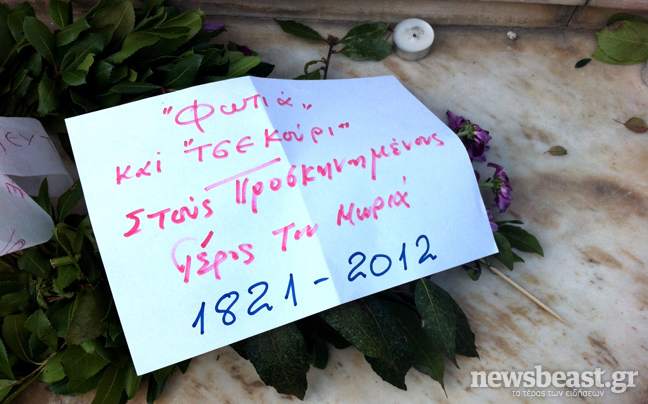 "Φωτιά"
και "ΤΣΕΚούρι"
Στους Προσκηνημένους
Γέρος Του Μωριά
1821-2012
newsbeast.gr
το τέρας των ειδήσεων